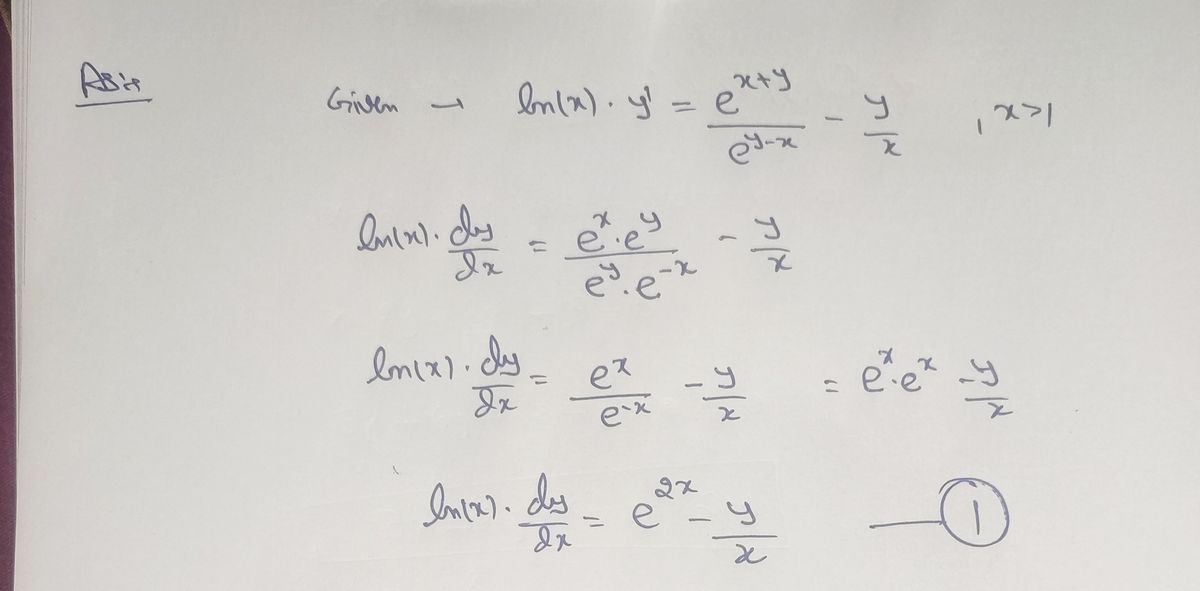 Given → ln(x) · y' = e^{x+y} / e^{y-x} - y/x , x>1
ln(x) · dy/dx = e^x · e^y / e^y · e^{-x} - y/x
ln(x) · dy/dx = e^x / e^{-x} - y/x = e^x · e^x - y/x
ln(x) · dy/dx = e^{2x} - y/x — 1